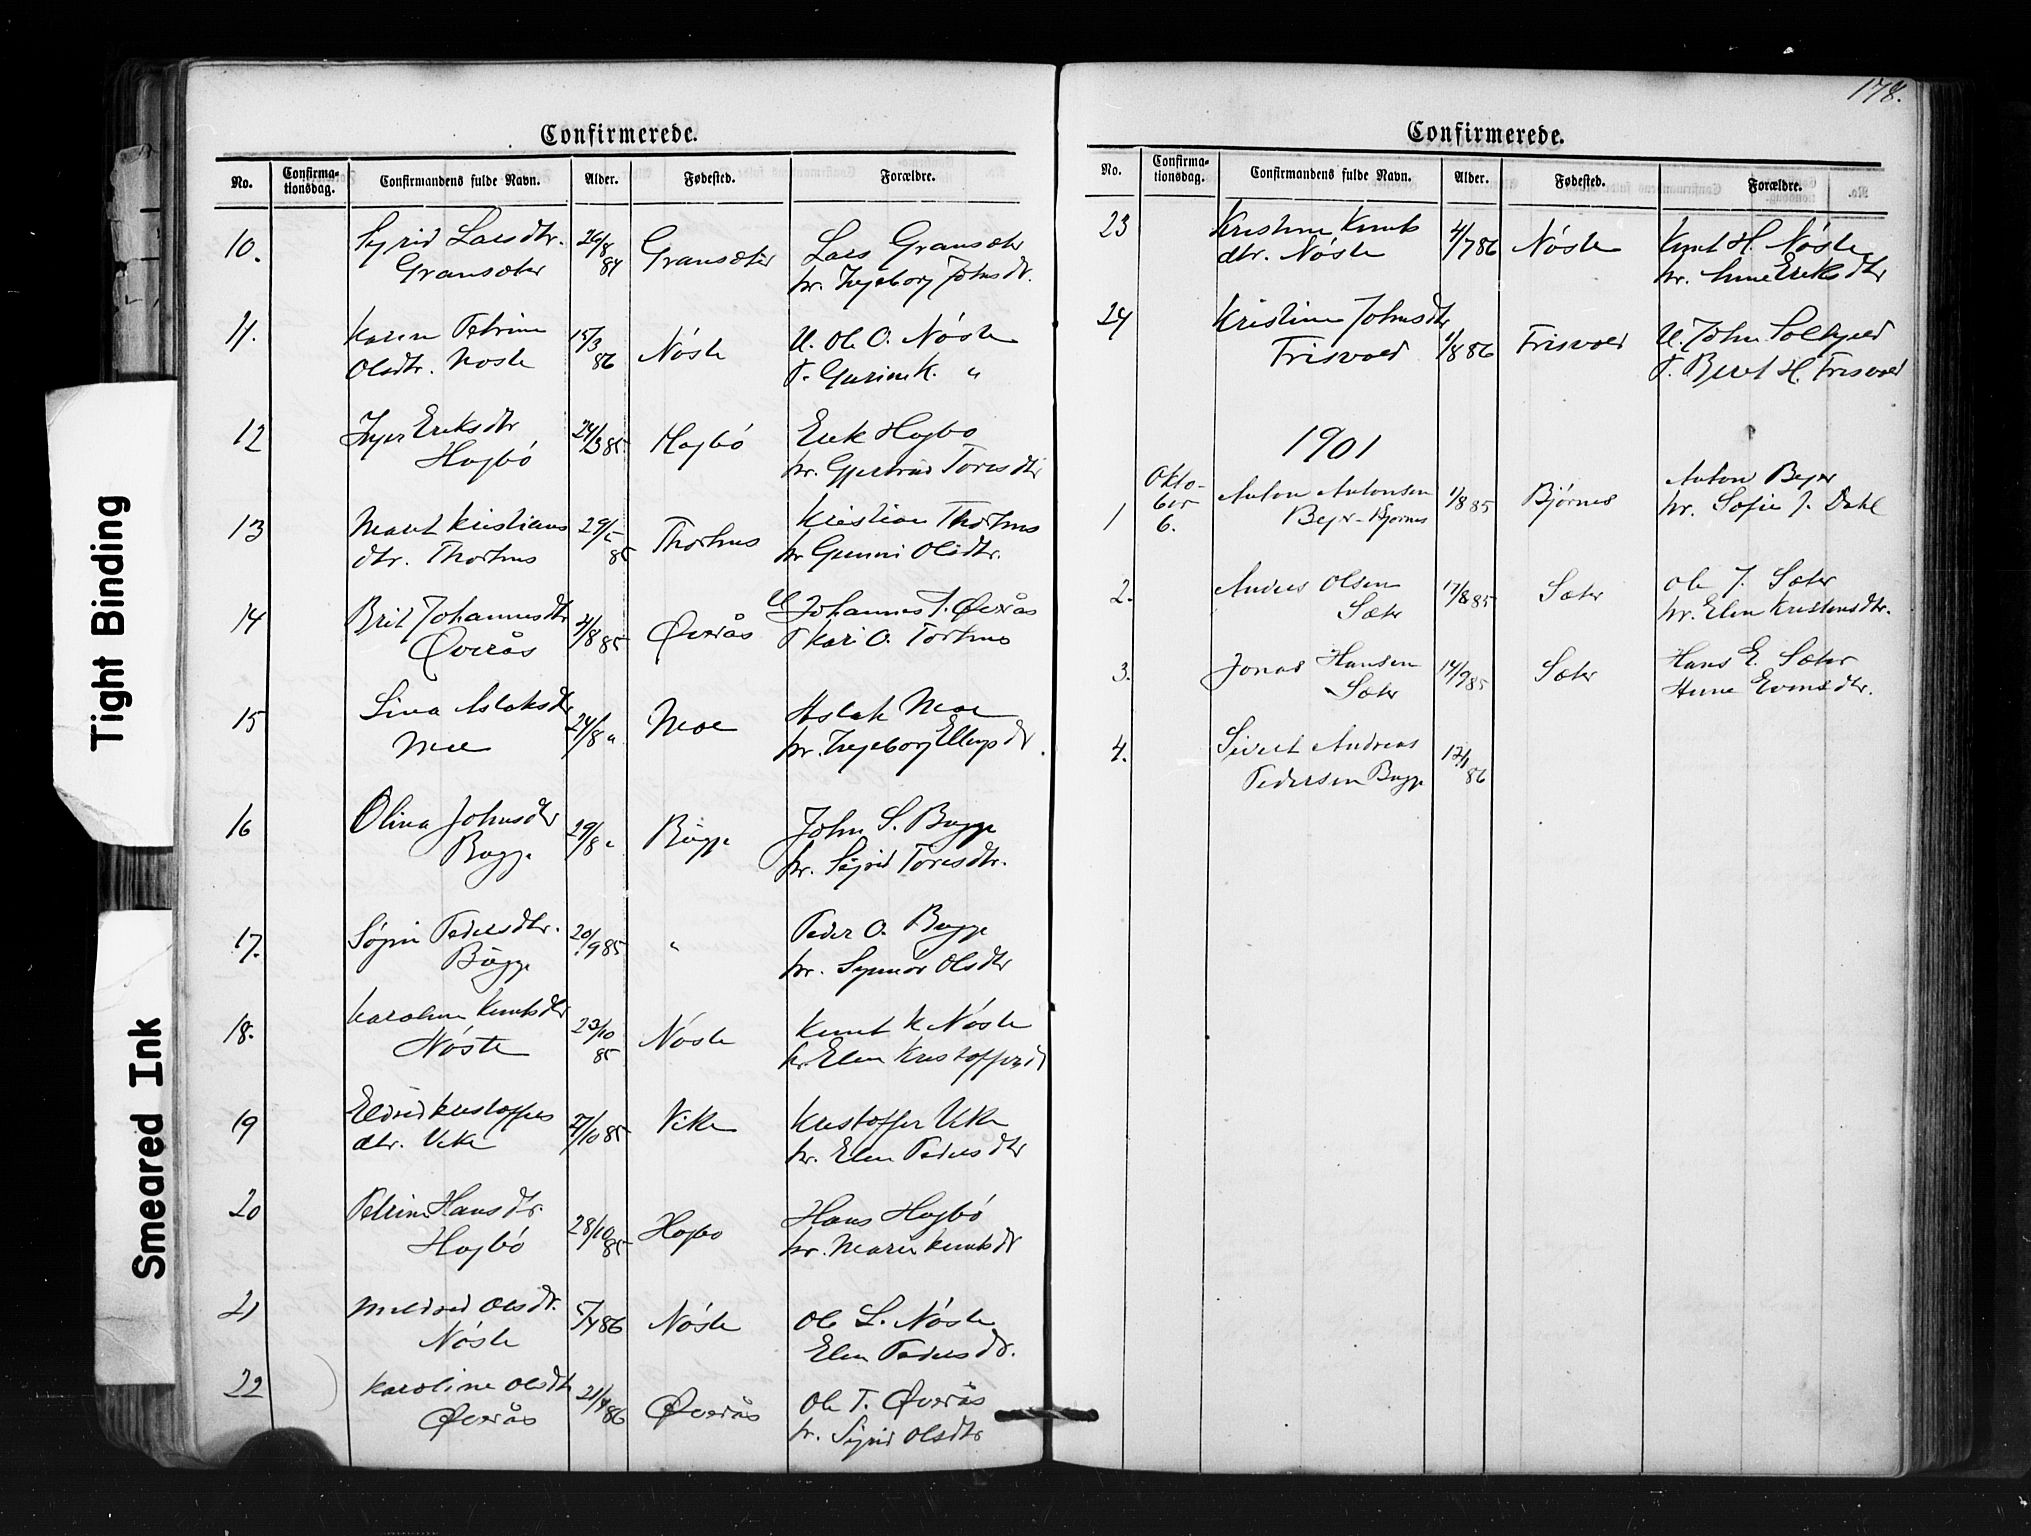 Tight Binding
Smeared Ink
Confirmerede.
No.
Confirma-
tionsdag.
Confirmandens fulde Navn.
Alder.
Fødested.
Forældre.
10.
Sigrid Larsdtr.
Gransæter
26/8
84
Gransæter
Lars Gransæter
hr. Ingeborg Johnsdt.
11.
Karen Petrine
Olsdtr. Nøste
15/3
86
Nøste
U. Ole O. Nøste
P. Gurine K. "
12
Inger Eriksdtr
Hagbö
24/3 85
Hagbö
Erik Hagbo
hr. Gjertrud Toresdtr
13
Marit Kristians
dtr. Thorhus
29/5
85
Thorhus
Kristian Thorhus
hr Gunni Olsdtr.
14
Brit Johannesdtr
Øverås
4/8 85
Øverås
U Johannes T. Øverås
P Kari O. Torhus
15
Lina Aslaksdtr
Moe
24/8 "
Moe
Aslak Moe
hr. Ingeborg Ellingsdt.
16
Olina Johnsdtr
Bugge
29/8 "
Bugge
John S. Bugge
hr. Sigrid Toresdtr.
17.
Pedersdtr.
Bugge
20/9 85
"
Peder O. Bugge
hr. Synnöv Olsdtr
18.
Karoline Knutsdtr
Nöste
23/10
85
Nöste
Knut K Nöste
hr. Elen Kristoffersdt
19
Eldrid Kristoffers
dtr. Vike
27/10 85
Vike
Kristoffer Vike
hr. Elen Pedersdtr
20
Petrine Hansdtr.
Hagbö
28/10
85
Hagbo
Hans Hagbö
hr. Marie Knutsdt
21
Mildrid Olsdt.
Nöste
5/4 86
Nöste
Ole L. Nöste
Elen Pedersdt.
22
Karoline Olsdtr
Øverås
21/4 86
Øverås
Ole T. Øverås
hr. Sigrid Olsdtr
178.
Confirmerede.
No.
Confirma-
tionsdag.
Confirmandens fulde Navn.
Alder.
Fødested.
Forældre.
23
Kristine Knuts
dtr. Nöste
4/7 86
Nöste
Knut H. Nöste
hr. Anne Eriksdtr
24
Kristine Johnsdtr
Frisvold
1/8 86
Frisvold
U. John
P. Beret H. Frisvold
1901
1
Okto-
ber
6.
Anton Antonsen
Bejer-Bjørnes
1/8 85
Bjørnes
Anton Bejer
hr. Sofie J. Dahl
2.
Anders Olsen
Sæter
17/8 85
Sæter
Ole J. Sæter
hr. Elen Kristensdtr.
3.
Jonas Hansen
Sæter
14/9 85
Sæter
Hans E. Sæter
Anne Evensdtr.
4.
Sivert Andreas
Pedersen Bugge
12/1
86